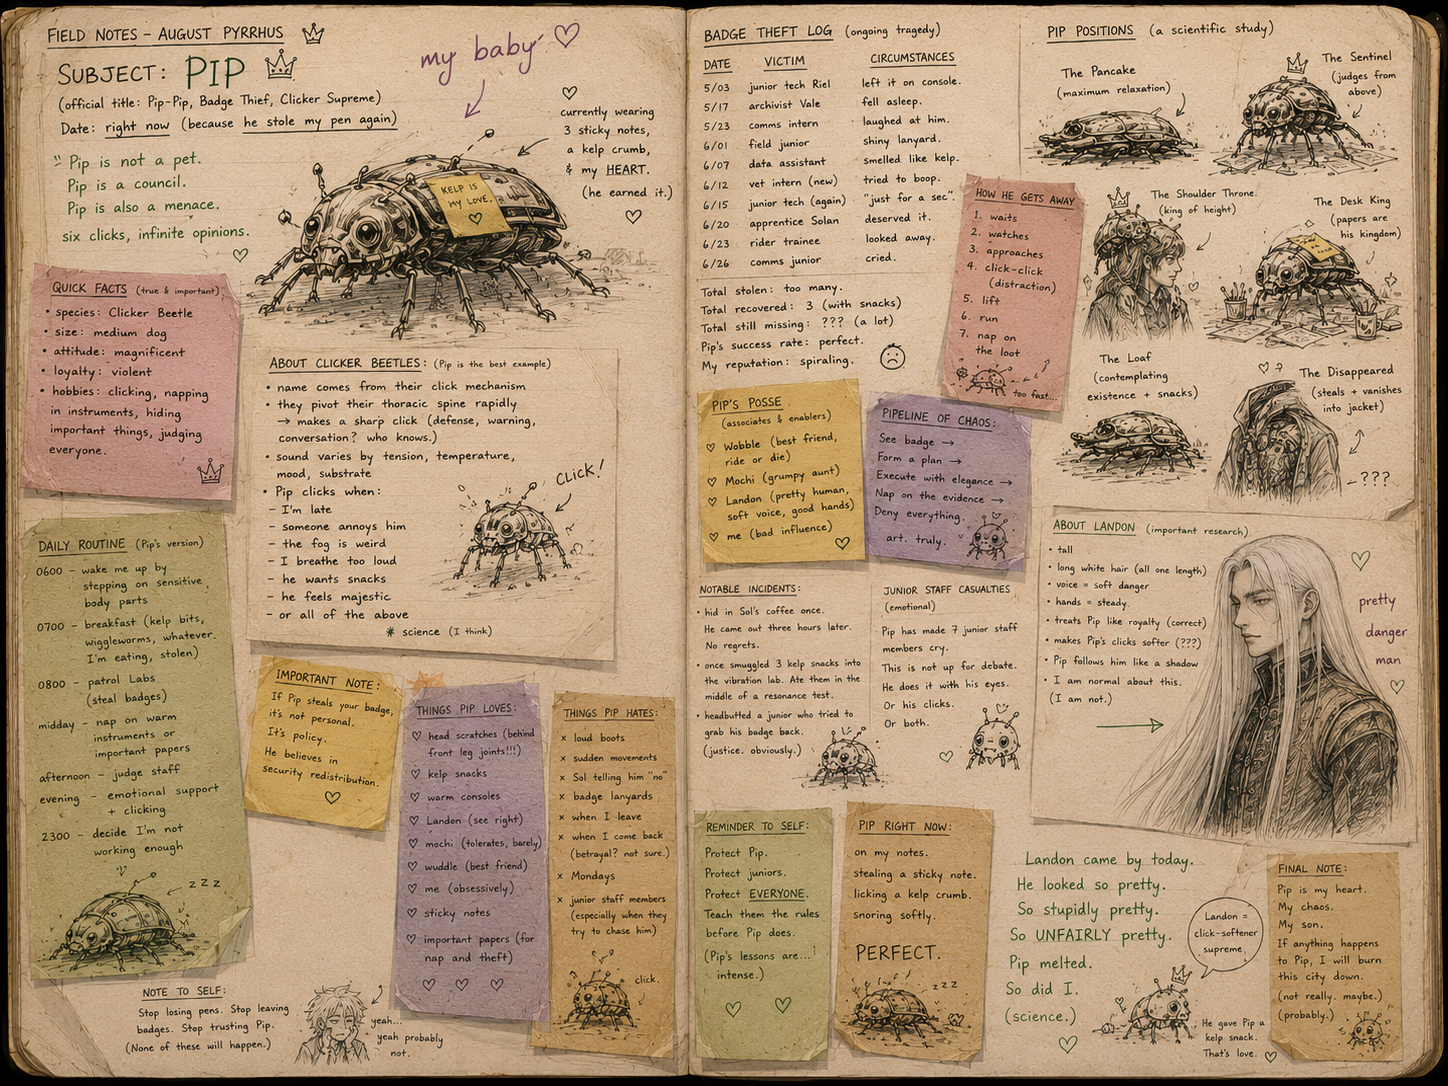 FIELD NOTES - AUGUST PYRRHUS
SUBJECT: PIP
(official title: Pip-Pip, Badge Thief, Clicker Supreme)
Date: right now (because he stole my pen again)
"Pip is not a pet.
Pip is a council.
Pip is also a menace.
six clicks, infinite opinions.
my baby
currently wearing
3 sticky notes,
a kelp crumb,
& my HEART.
(he earned it.)
KELP IS
MY LOVE.
QUICK FACTS (true & important)
• species: Clicker Beetle
• size: medium dog
• attitude: magnificent
• loyalty: violent
• hobbies: clicking, napping
in instruments, hiding
important things, judging
everyone.
ABOUT CLICKER BEETLES: (Pip is the best example)
• name comes from their click mechanism
• they pivot their thoracic spine rapidly
→ makes a sharp click (defense, warning,
conversation? who knows.)
• sound varies by tension, temperature,
mood, substrate
• Pip clicks when:
- I'm late
- someone annoys him
- the fog is weird
- I breathe too loud
- he wants snacks
- he feels majestic
- or all of the above
* science (I think)
CLICK!
DAILY ROUTINE (Pip's version)
0600 - wake me up by
stepping on sensitive
body parts
0700 - breakfast (kelp bits,
wiggleworms, whatever
I'm eating, stolen)
0800 - patrol Labs
(steal badges)
midday - nap on warm
instruments or
important papers
afternoon - judge staff
evening - emotional support
+ clicking
2300 - decide I'm not
working enough
z z z
IMPORTANT NOTE:
If Pip steals your badge,
it's not personal.
It's policy.
He believes in
security redistribution.
THINGS PIP LOVES:
head scratches (behind
front leg joints!!!)
kelp snacks
warm consoles
Landon (see right)
mochi (tolerates, barely)
wuddle (best friend)
me (obsessively)
sticky notes
important papers (for
nap and theft)
THINGS PIP HATES:
x loud boots
x sudden movements
x Sol telling him "no"
x badge lanyards
x when I leave
x when I come back
(betrayal? not sure.)
x Mondays
x junior staff members
(especially when they
try to chase him)
click.
NOTE TO SELF:
Stop losing pens. Stop leaving
badges. Stop trusting Pip.
(None of these will happen.)
yeah...
yeah probably
not.
BADGE THEFT LOG (ongoing tragedy)
DATE VICTIM CIRCUMSTANCES
5/03 junior tech Riel left it on console.
5/17 archivist Vale fell asleep.
5/23 comms intern laughed at him.
6/01 field junior shiny lanyard.
6/07 data assistant smelled like kelp.
6/12 vet intern (new) tried to boop.
6/15 junior tech (again) "just for a sec".
6/20 apprentice Solan deserved it.
6/23 rider trainee looked away.
6/26 comms junior cried.
Total stolen: too many.
Total recovered: 3 (with snacks)
Total still missing: ??? (a lot)
Pip's success rate: perfect.
My reputation: spiraling.
HOW HE GETS AWAY
1. waits
2. watches
3. approaches
4. click-click
(distraction)
5. lift
6. run
7. nap on
the loot
too fast...
PIP POSITIONS (a scientific study)
The Pancake
(maximum relaxation)
The Sentinel
(judges from
above)
The Shoulder Throne
(king of height)
The Desk King
(papers are
his kingdom)
The Loaf
(contemplating
existence + snacks)
The Disappeared
(steals + vanishes
into jacket)
???
PIP'S POSSE
(associates & enablers)
Wobble (best friend,
ride or die)
Mochi (grumpy aunt)
Landon (pretty human,
soft voice, good hands)
me (bad influence)
PIPELINE OF CHAOS:
See badge →
Form a plan →
Execute with elegance →
Nap on the evidence →
Deny everything.
art. truly.
NOTABLE INCIDENTS:
• hid in Sol's coffee once.
He came out three hours later.
No regrets.
• once smuggled 3 kelp snacks into
the vibration lab. Ate them in the
middle of a resonance test.
• headbutted a junior who tried to
grab his badge back.
(justice. obviously.)
JUNIOR STAFF CASUALTIES
(emotional)
Pip has made 7 junior staff
members cry.
This is not up for debate.
He does it with his eyes.
Or his clicks.
Or both.
ABOUT LANDON (important research)
• tall
• long white hair (all one length)
• voice = soft danger
• hands = steady.
• treats Pip like royalty (correct)
• makes Pip's clicks softer (???)
• Pip follows him like a shadow
• I am normal about this.
(I am not.)
pretty
danger
man
REMINDER TO SELF:
Protect Pip.
Protect juniors.
Protect EVERYONE.
Teach them the rules
before Pip does.
(Pip's lessons are...
intense.)
PIP RIGHT NOW:
on my notes.
stealing a sticky note.
licking a kelp crumb.
snoring softly.
PERFECT.
z z z
Landon came by today.
He looked so pretty.
So stupidly pretty.
So UNFAIRLY pretty.
Pip melted.
So did I.
(science.)
Landon =
click-softener
supreme
He gave Pip a
kelp snack.
That's love.
FINAL NOTE:
Pip is my heart.
My chaos.
My son.
If anything happens
to Pip, I will burn
this city down.
(not really. maybe.)
(probably.)